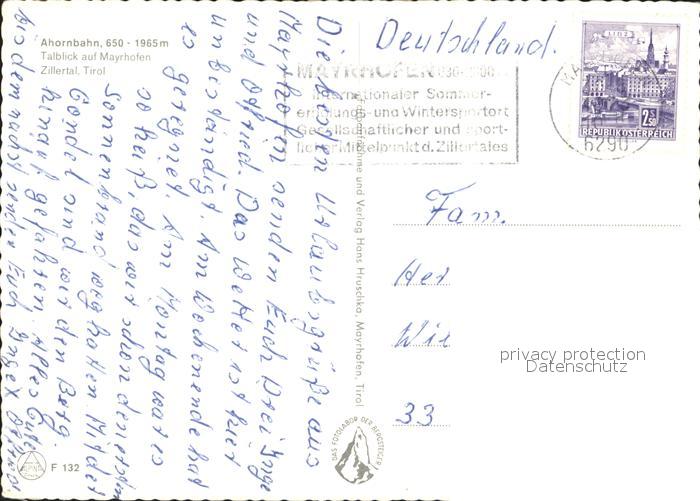 Ahornbahn, 650 - 1965m
Talblick auf Mayrhofen
Zillertal, Tirol
Deutschland.
MAYRHOFEN 630-2100
internationaler Sommer-
erholungs- und Wintersportort
Gesellschaftlicher und sport-
licher Mittelpunkt d. Zillertales
LINZ
2.50
REPUBLIK ÖSTERREICH
6290
Die besten Urlaubsgrüße aus
Mayrhofen senden Euch
und Ottfried. Das Wetter ist hier
unbeständigt. Am Wochenende hat
es geregnet. Am Montag war es
so heiß, das wir schon den ersten
Sonnenbrand weg hatten. Mit der
Gondel sind wir den Berg
hinauf gefahren. Alles Gute
Euch
und Verlag Hans Hruschka, Mayrhofen, Tirol
Fam.
Her
Wil
33
privacy protection
Datenschutz
DAS FOTOLABOR DER BERGSTEIGER
F 132